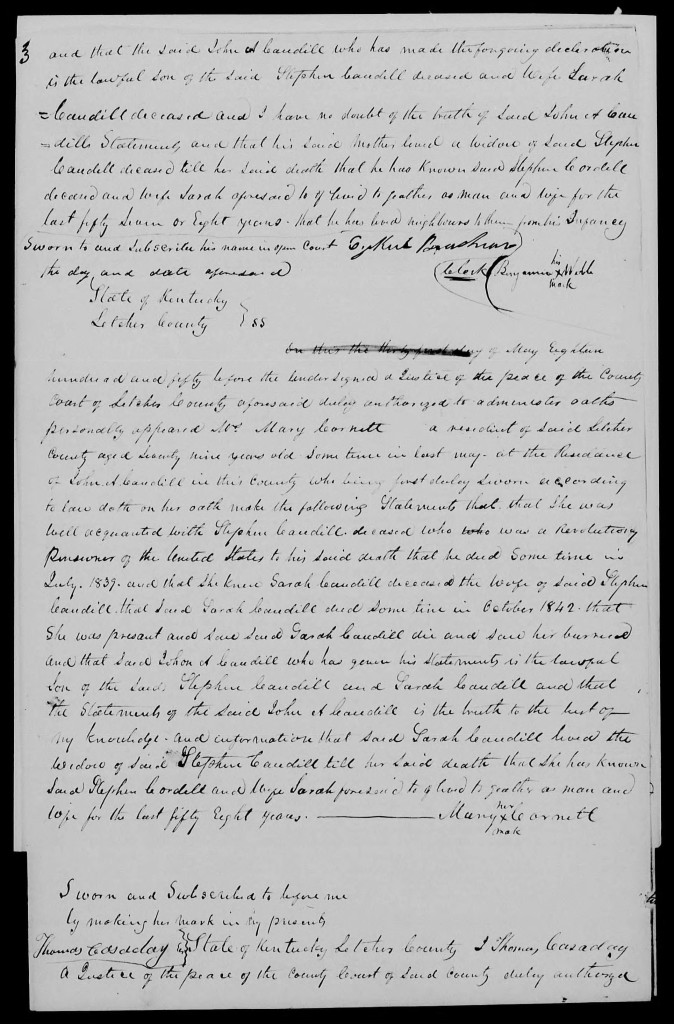 3
and that the said John A Caudill who has made the forgoing declaration
is the lawful son of the said Stephen Caudill deceased and Wife Sarah
=Caudill deceased and I have no doubt of the truth of said John A Cau
=dills Statements and that his said Mother lived a widow of said Stephen
Caudill diceased till her said death that he has known said Stephen Cordell
deceased and wife Sarah aforesaid to of lived to geather as man and wife for the
last fifty Seven or Eight years. that he has lived neighbours to them from his Infancy
Sworn to and Subscribe his name in open Court
the day and date aforesaid Clerk Benjamin his X Webb mark
State of Kentucky
Letcher County } SS
on this the thirty first day of May Eighteen
hundread and fifty before the undersigned a Justice of the peace of the County
Court of Letcher County aforesaid duley authorized to administer oaths
personally appeared Mrs Mary Cornett a resident of said Letcher
County aged Seventy nine years old Some time in last may. at the Residance
of John A Caudill in this County who being first duley Sworn according
to law doth on her oath make the following Statements that. that She was
well acquanted with Stephen Caudill. deceased who who was a Revolutiony
Pensioner of the United States to his said death that he died Some time in
July. 1839. and that She knew Sarah Caudill deceased the Wife of said Stephen
Caudill. that said Sarah Caudill died Some time in October 1842. that
She was presant and saw said Sarah Caudill die and saw her burried
and that said Johon A Caudill who has given his Statements is the lawful
Son of the said Stephen Caudill and Sarah Caudell and that
the Statements of the said John A Caudill is the truth to the best of
my knowledge. and information that said Sarah Caudill lived the
widow of said Stephen Caudill till her said death that She has known
said Stephen Cordell and Wife Sarah foresaid to of lived to geather as man and
Wife for the last fifty Eight years. Mary her X Cornett mark
Sworn and Subscribed to before me
by making her mark in my presents
Thomas Casaday State of Kentucky Letcher County I Thomas Casaday
A Justice of the peace of the County Court of said County duley authorizd